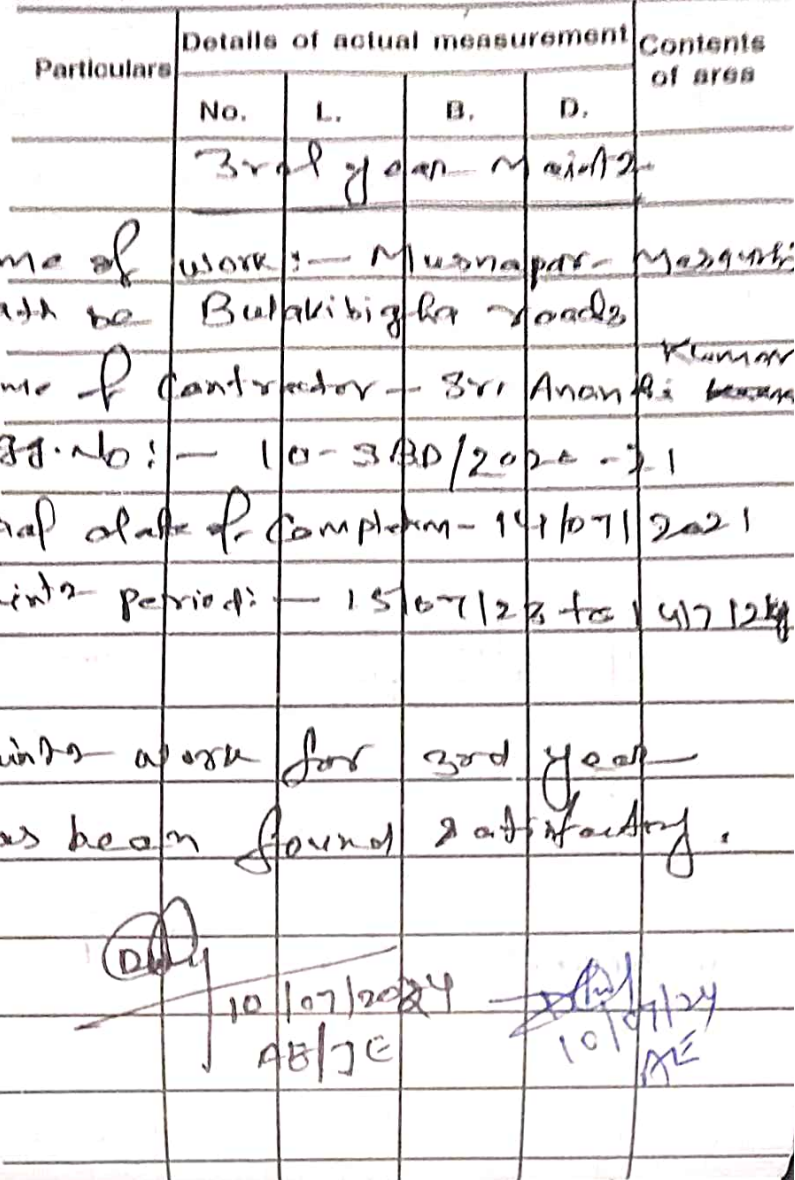 Particulars Details of actual measurement Contents of area
No. L. B. D.
3rd year Maint2-
me of work :- Musnapar-
be Bulakibigha roads
Kumar
me of Contractor - Sri
gg. No :- 10-SBD/2020-21
nal date of Completion - 14/07/2021
int2 period: - 15/07/23 to 14/7/24
int2 work for 3rd year
as been found satisfactory.
10/07/2024
AE/JE
10/07/24
AE